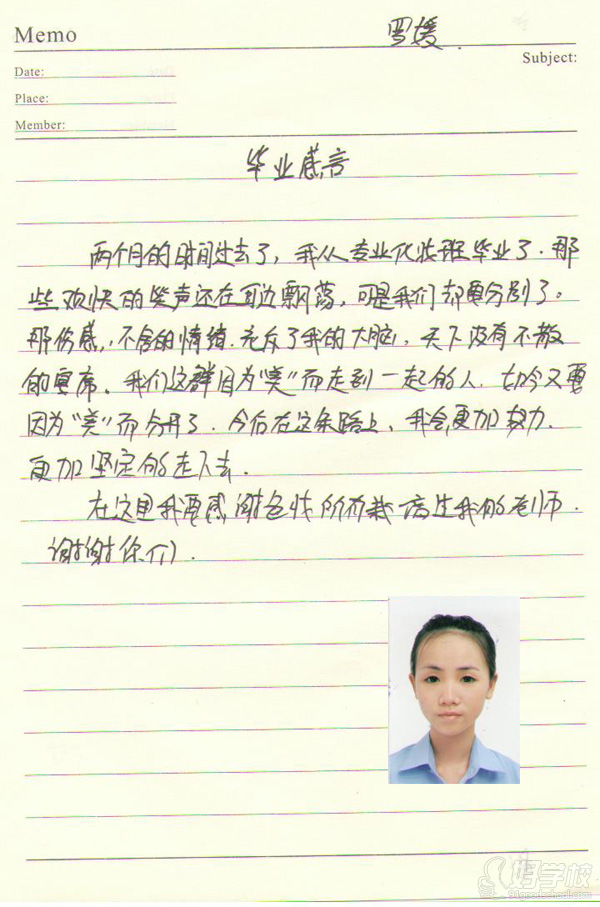 Memo
罗媛.
Subject:
Date:
Place:
Member:
毕业感言
两个月的时间过去了，我从专业化妆班毕业了.那
些欢快的笑声还在耳边飘荡，可是我们却要分别了。
那伤感，不舍的情绪.充斥了我的大脑，天下没有不散
的宴席、我们这群因为“美”而走到一起的人.如今又要
因为“美”而分开了.今后在这条路上、我会更加努力.
更加坚定的走下去.
在这里我要感谢色妆所有栽培过我的老师.
谢谢你们.
好学校